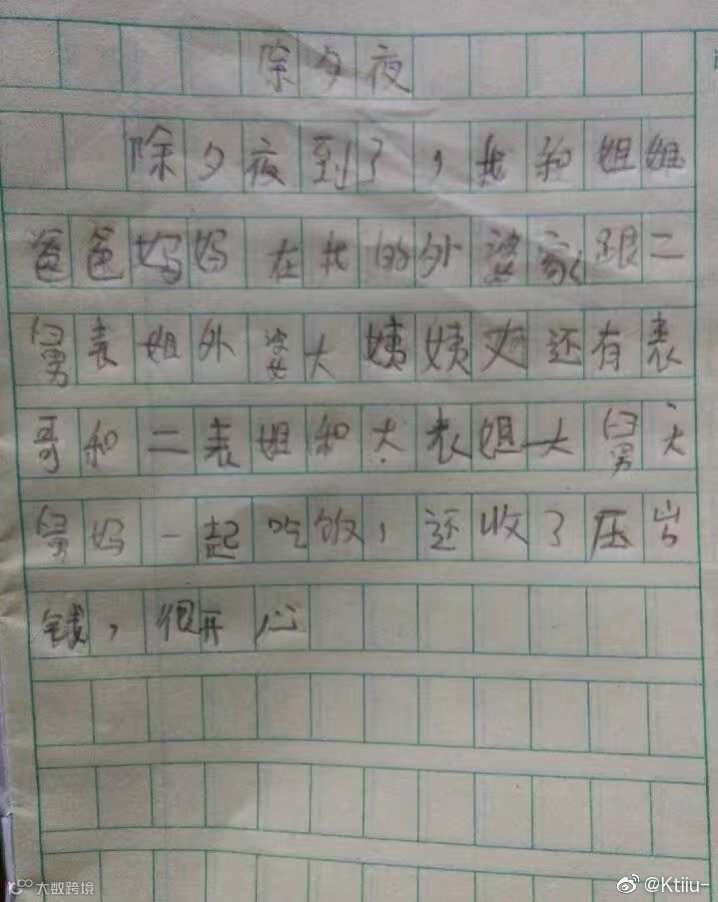 除夕夜
除夕夜到了，我和姐姐
爸爸妈妈在我的外婆家跟二
舅表姐外婆大姨姨丈还有表
哥和二表姐和大表姐大舅大
舅妈一起吃饭，还收了压岁
钱，很开心
大数跨境
@Ktiiu-